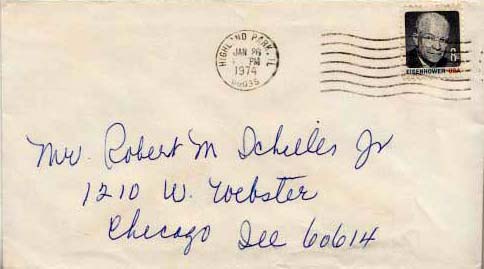 HIGHLAND PARK, IL
JAN 26
PM
1974
60035
8
EISENHOWER USA
Mr. Robert M Schilles Jr
1210 W. Webster
Chicago Ill 60614